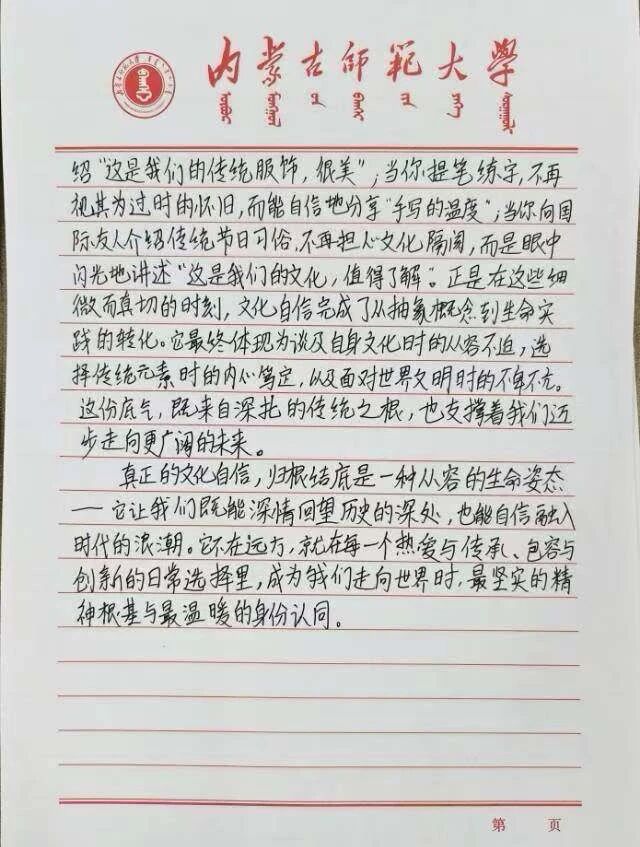 内蒙古师范大学
绍“这是我们的传统服饰，很美”；当你提笔练字，不再
视其为过时的怀旧，而能自信地分享“手写的温度”；当你向国
际友人介绍传统节日习俗，不再担心文化隔阂，而是眼中
闪光地讲述“这是我们的文化，值得了解”。正是在这些细
微而真切的时刻，文化自信完成了从抽象概念到生命实
践的转化。它最终体现为谈及自身文化时的从容不迫，选
择传统元素时的内心笃定，以及面对世界文明时的不卑不亢。
这份底气，既来自深扎的传统之根，也支撑着我们迈
步走向更广阔的未来。
真正的文化自信，归根结底是一种从容的生命姿态
——它让我们既能深情回望历史的深处，也能自信融入
时代的浪潮。它不在远方，就在每一个热爱与传承、包容与
创新的日常选择里，成为我们走向世界时，最坚实的精
神根基与最温暖的身份认同。
第 页